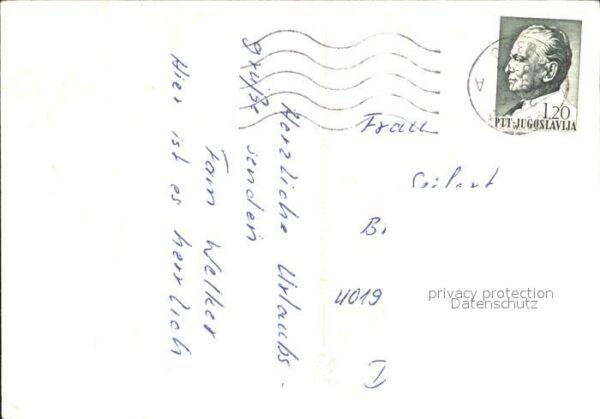 Herzliche Urlaubs-
grüße senden
Fam Welker
Hier ist es herrlich.
Frau
4019
1.20
PTT-JUGOSLAVIJA
A
privacy protection
Datenschutz